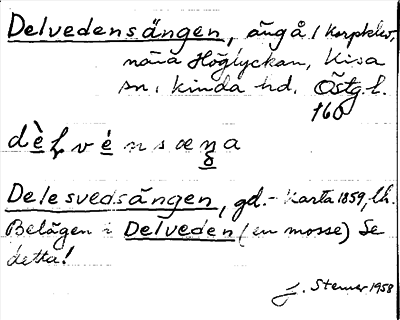 Delvedensängen, äng å / Korphelev,
nära Höglyckan, Kisa
sn, Kinda hd. Östg. l.
160
dèlvénsæŋa
Delesvedsängen, gd. - Karta 1859, lh.
Belägen i Delveden (en mosse) Se
detta!
J. Stemer 1958